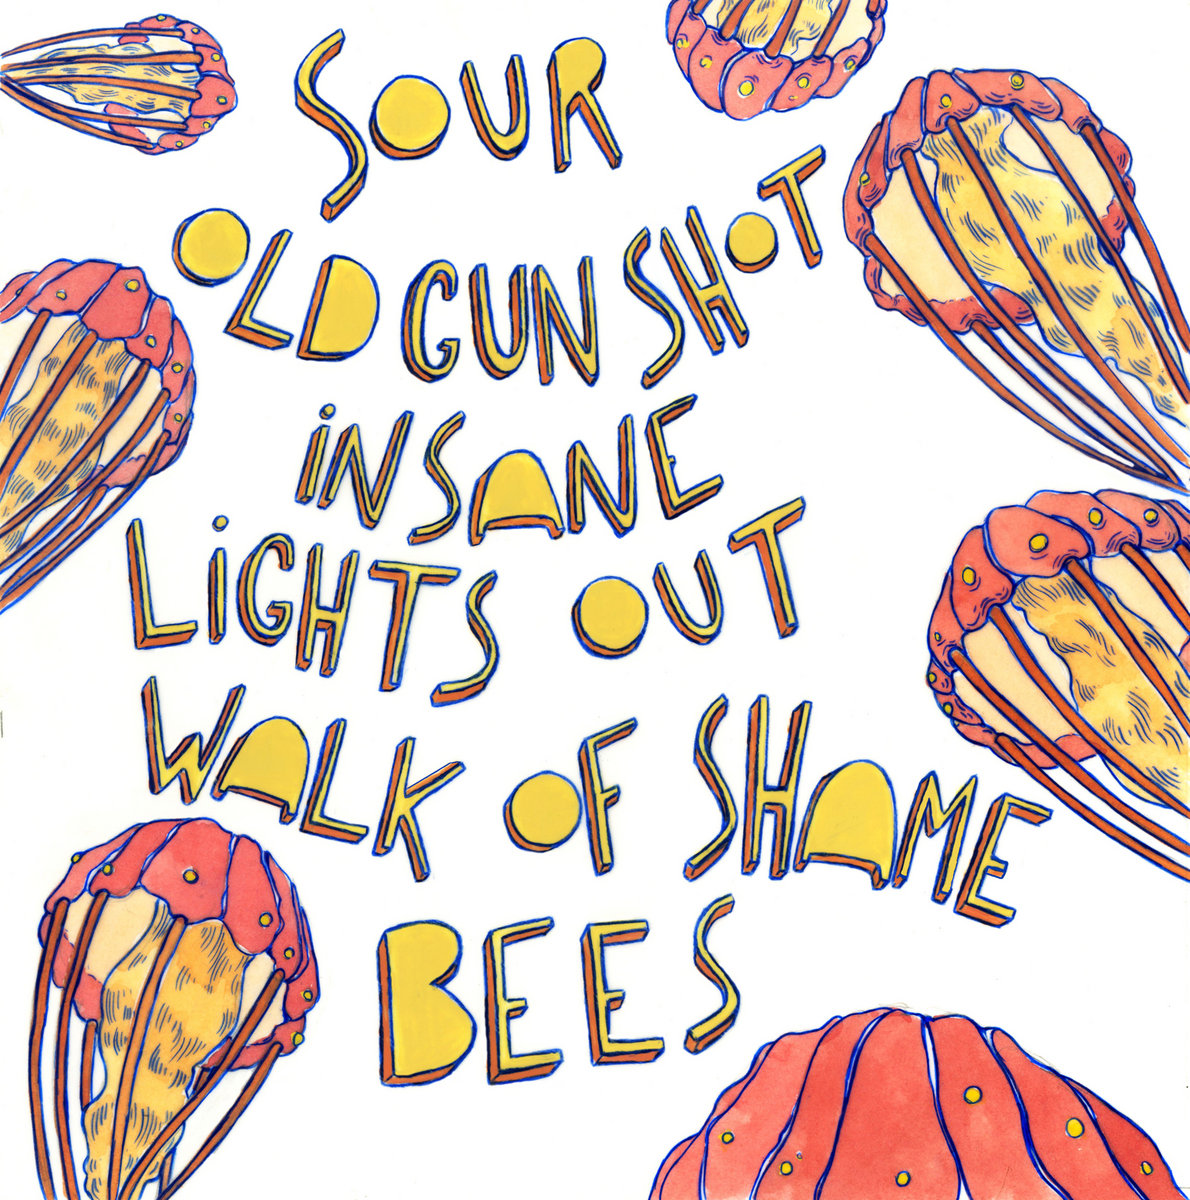 SOUR
OLD GUN SHOT
iNSANE
LiGHTS OUT
WALK OF SHAME
BEES